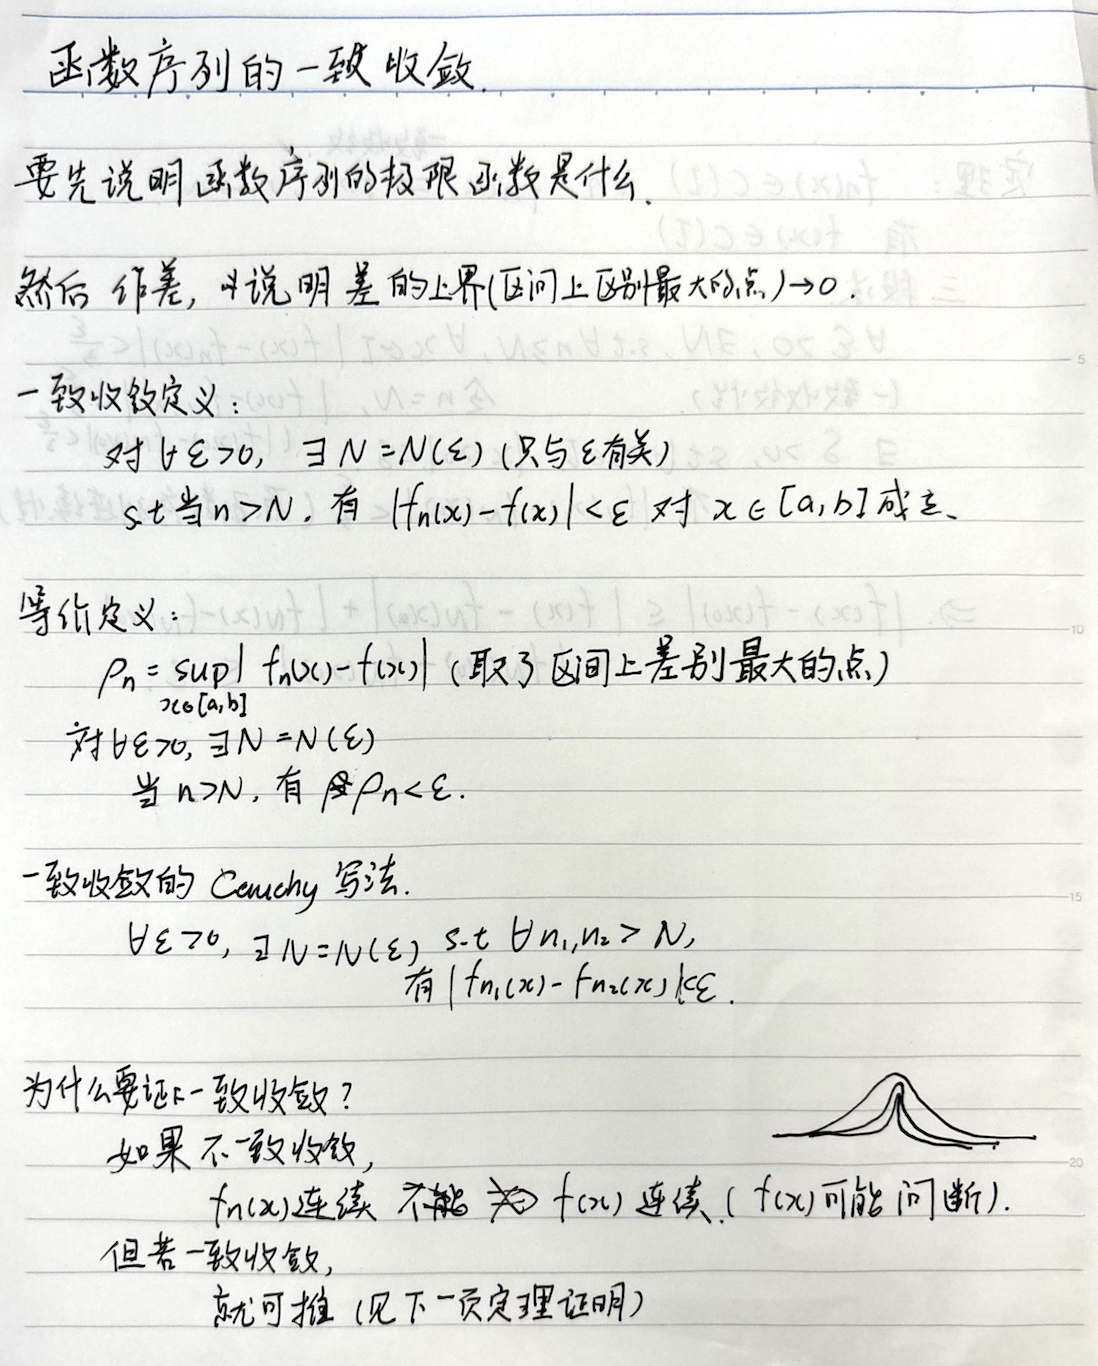 函数序列的一致收敛.
要先说明函数序列的极限函数是什么.
然后 作差, 说明差的上界(区间上区别最大的点)→0.
一致收敛定义:
对∀ε>0, ∃N=N(ε) (只与ε有关)
s.t当n>N. 有 |fn(x)-f(x)|<ε 对 x∈[a,b]成立.
等价定义:
ρn = sup| fn(x)-f(x)| (取了区间上差别最大的点)
x∈[a,b]
对∀ε>0, ∃N=N(ε)
当 n>N, 有 ρn<ε.
一致收敛的 Cauchy 写法.
∀ε>0, ∃N=N(ε) s.t ∀n₁,n₂ > N,
有|fn₁(x)-fn₂(x)|<ε.
为什么要证一致收敛?
如果不一致收敛,
fn(x)连续 不能 ⇒ f(x) 连续. (f(x)可能间断).
但若一致收敛,
就可推 (见下一页定理证明)
5
10
15
20